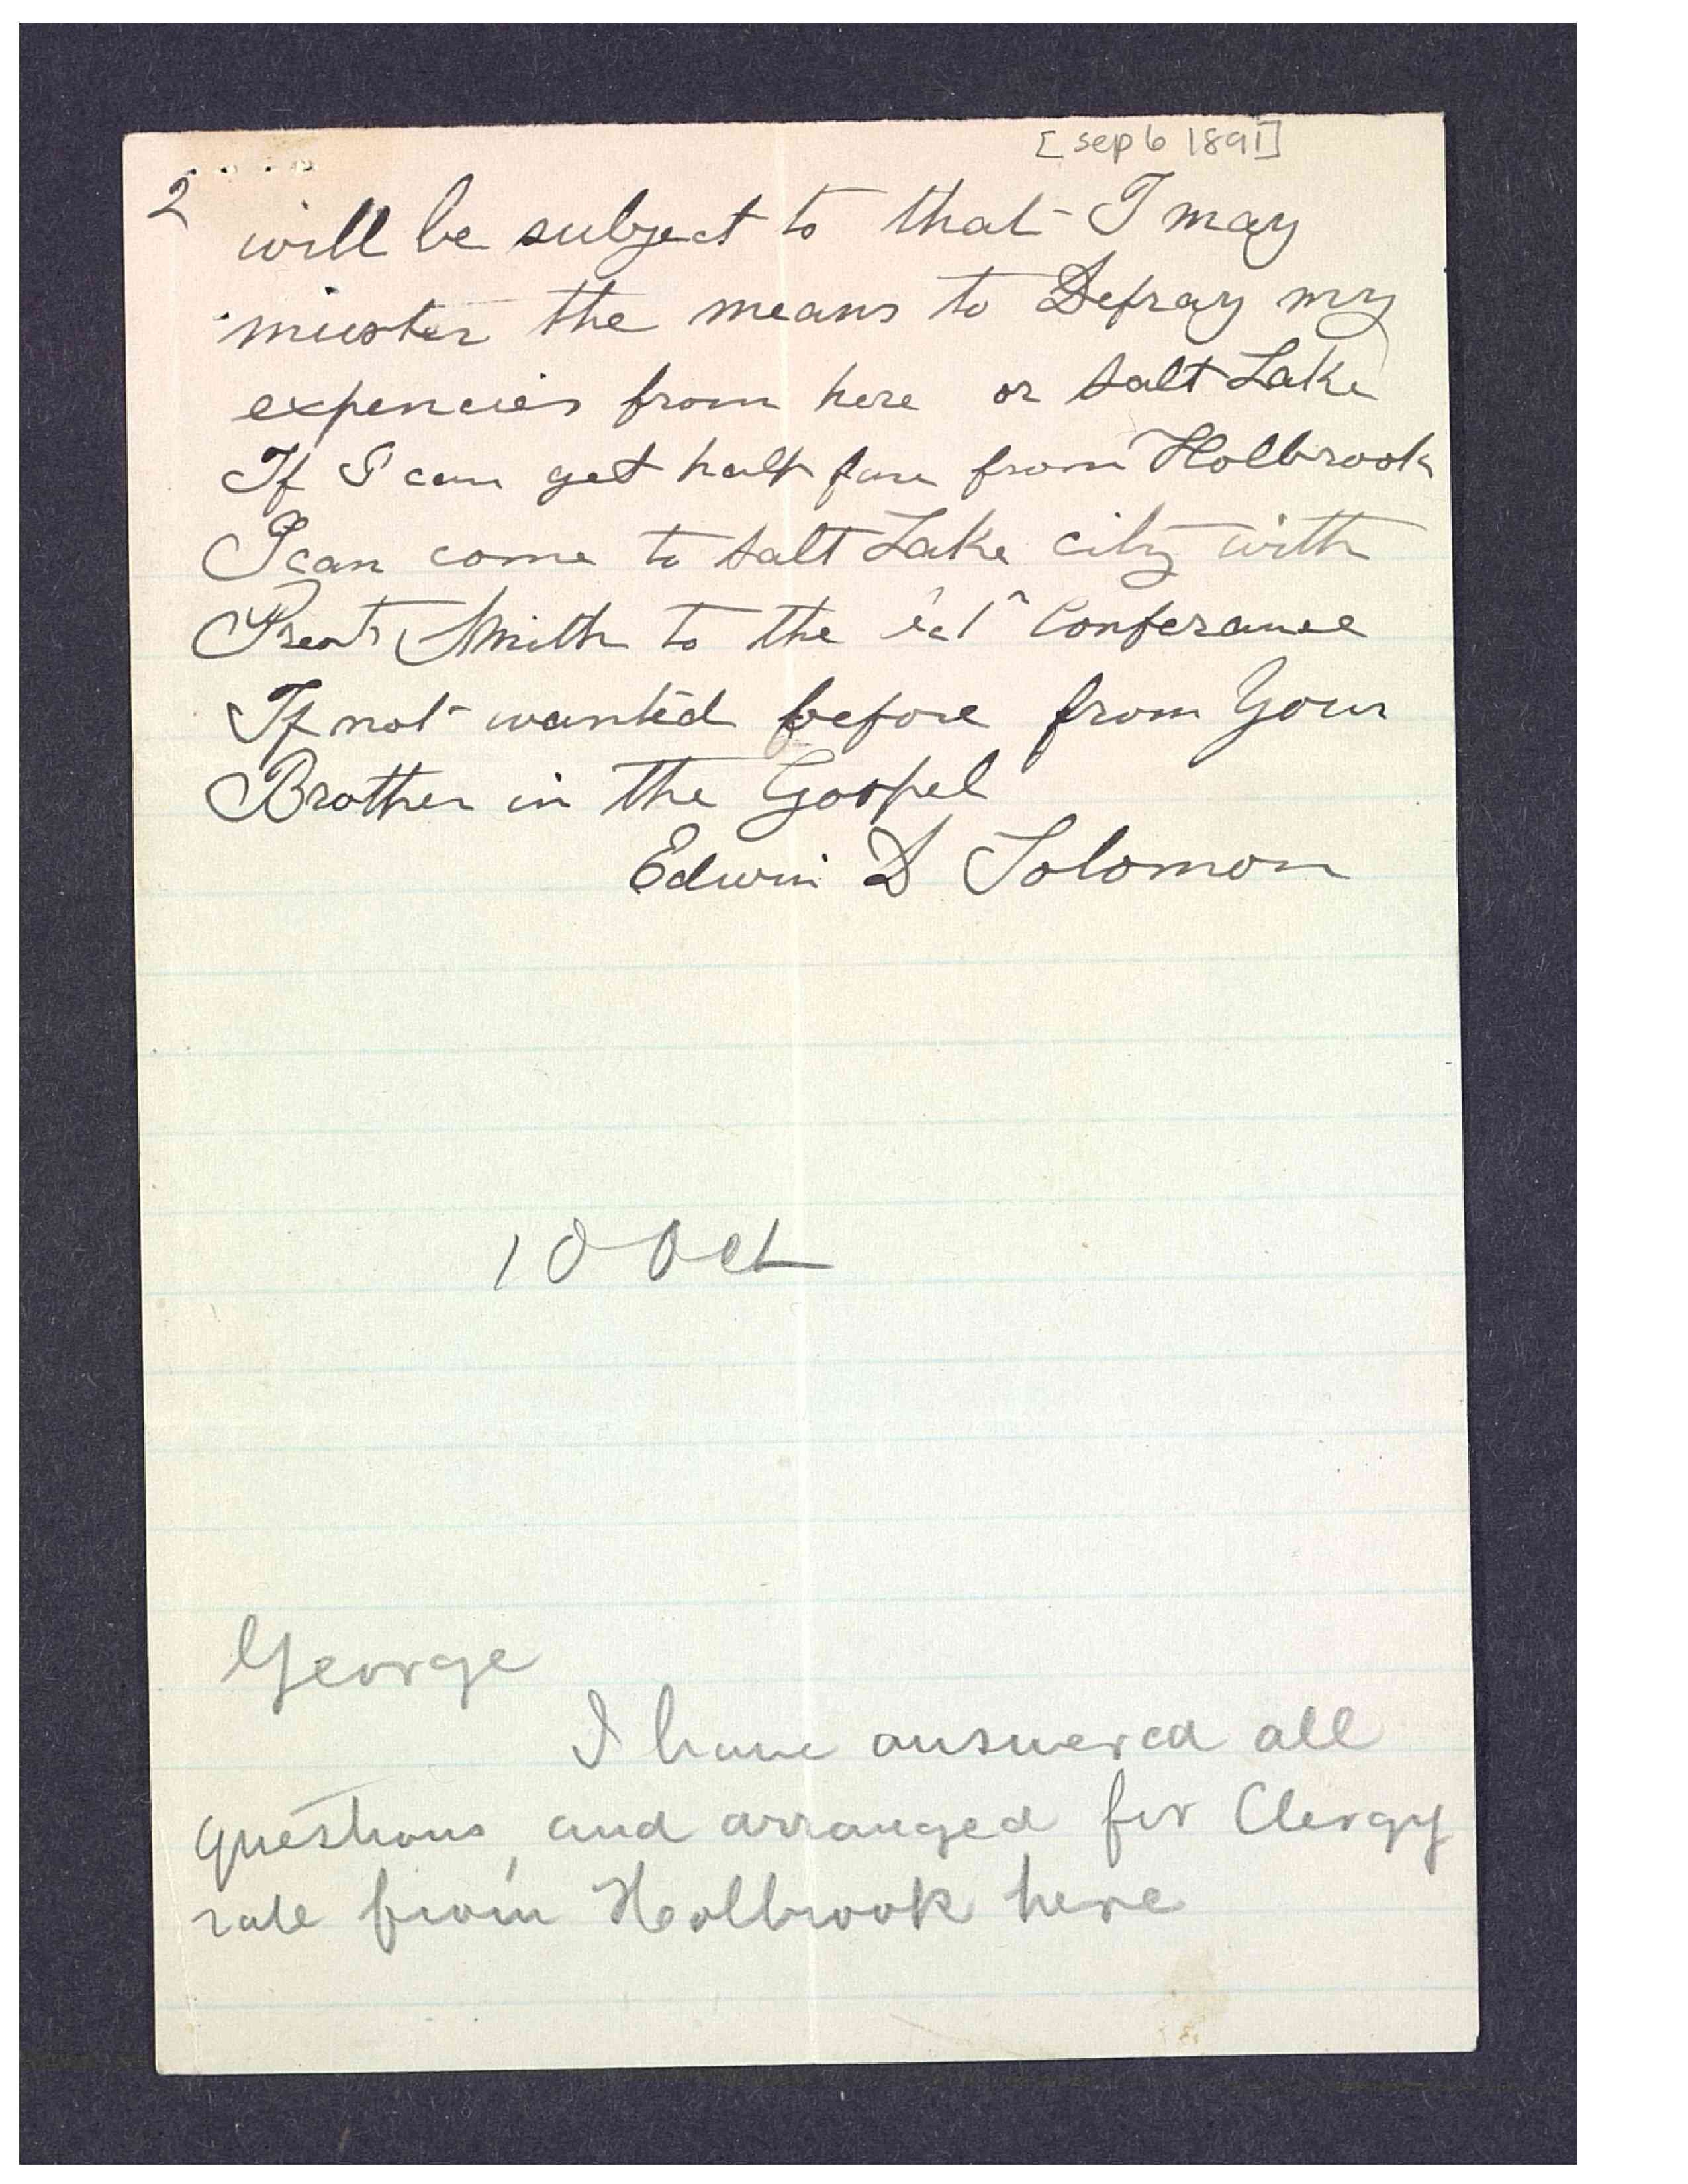 [sep 6 1891]
2
will be subject to that I may
muster the means to Defray my
expencies from here or Salt Lake
If I can get half fare from Holbrook
I can come to Salt Lake city with
Prest Smith to the Conferance
If not wanted before from Your
Brother in the Gospel
Edwin D Solomon
10 Oct
George
I have answered all
questions, and arranged for Clergy
rate from Holbrook here